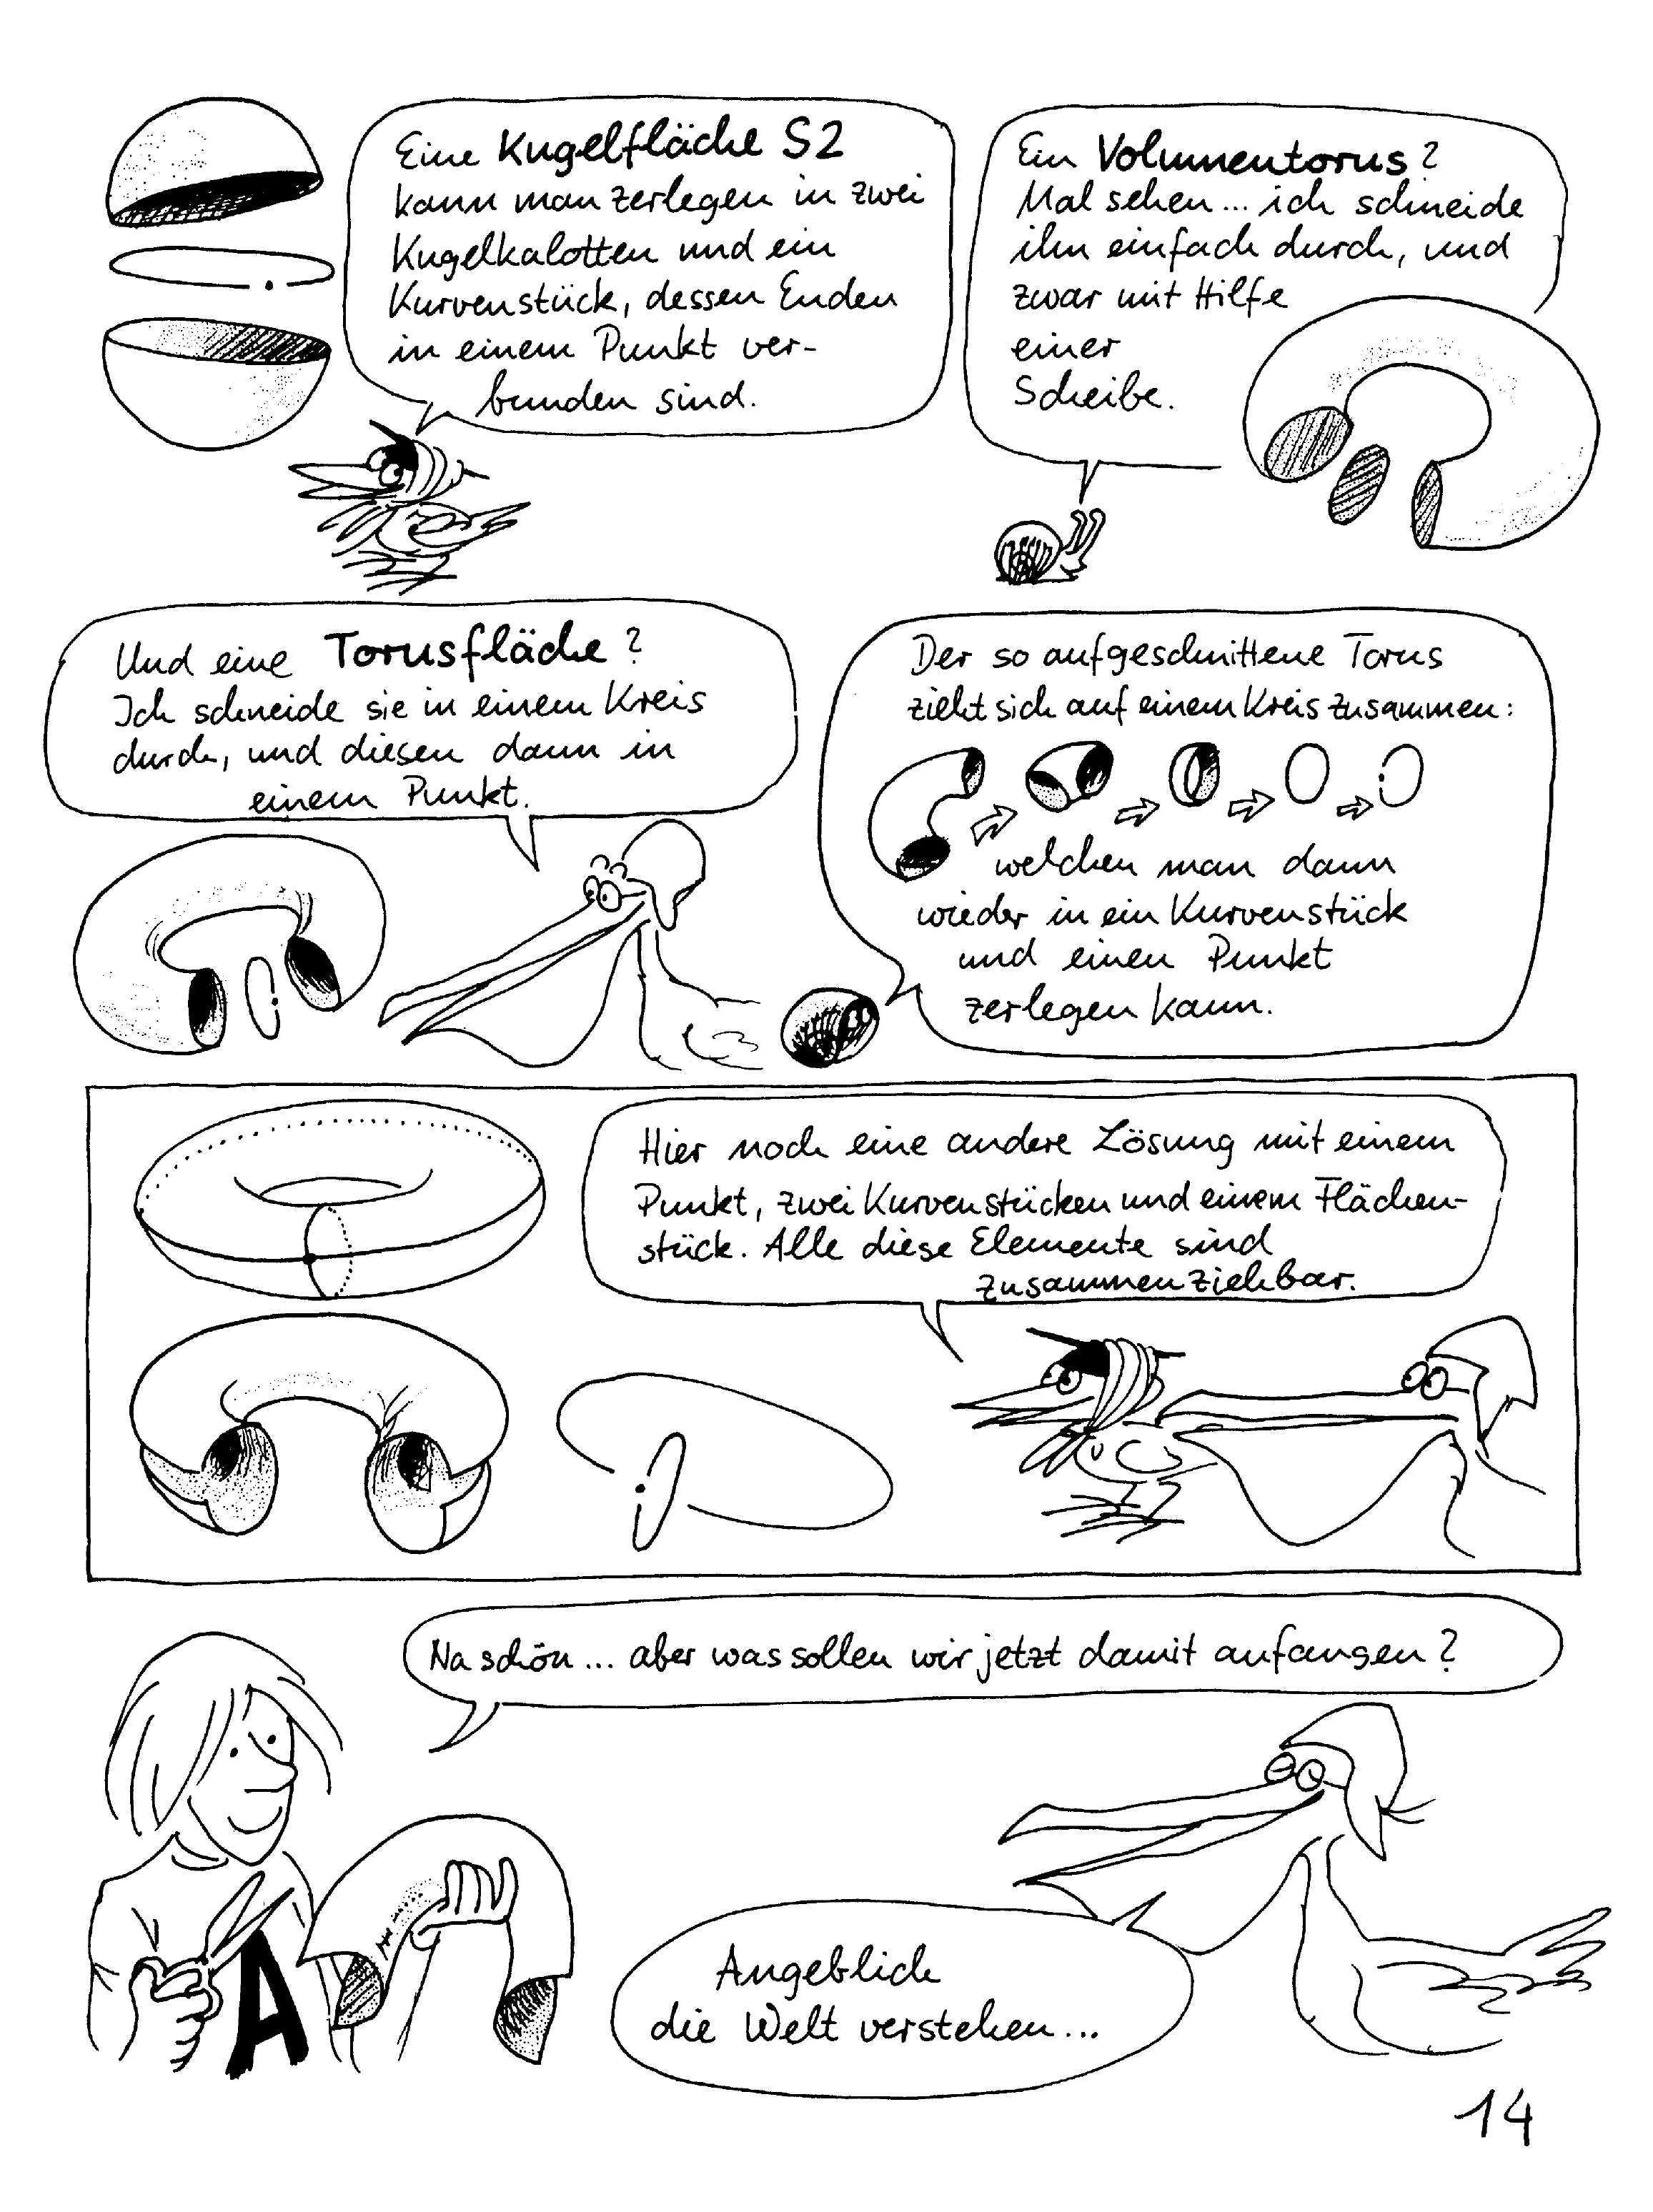 Eine Kugelfläche S2
kann man zerlegen in zwei
Kugelkalotten und ein
Kurvenstück, dessen Enden
in einem Punkt ver-
bunden sind.
Ein Volumentorus?
Mal sehen... ich schneide
ihn einfach durch, und
zwar mit Hilfe
einer
Scheibe.
Und eine Torusfläche?
Ich schneide sie in einem Kreis
durch, und diesen dann in
einem Punkt.
Der so aufgeschnittene Torus
zieht sich auf einem Kreis zusammen:
welchen man dann
wieder in ein Kurvenstück
und einen Punkt
zerlegen kann.
Hier noch eine andere Lösung mit einem
Punkt, zwei Kurvenstücken und einem Flächen-
stück. Alle diese Elemente sind
zusammenziehbar.
Na schön... aber was sollen wir jetzt damit anfangen?
A
Angeblich
die Welt verstehen...
14